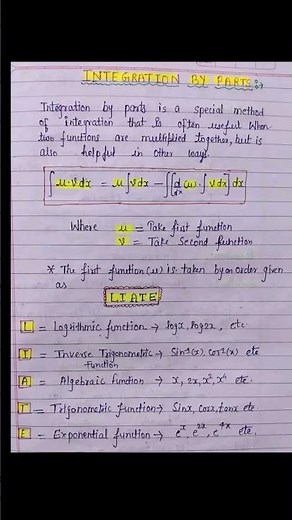 INTEGRATION BY PARTS:-
Integration by parts is a special method
of integration that is often useful when
two functions are multiplied together, but is
also helpful in other ways.
∫u·v dx = u∫v dx − ∫[d/dx (u)·∫v dx] dx
Where u = Take first function
v = Take Second function
* The first function (u) is taken by an order given
as
LIATE
L = Logrithmic function → logx, log2x, etc
I = Inverse Trigonometric → Sin⁻¹(x), cos⁻¹(x) etc
function
A = Algebraic function → x, 2x, x², x⁴ etc.
T = Trigonometric function → Sinx, cosx, tanx etc
E = Exponential function → eˣ, e²ˣ, e⁴ˣ etc.